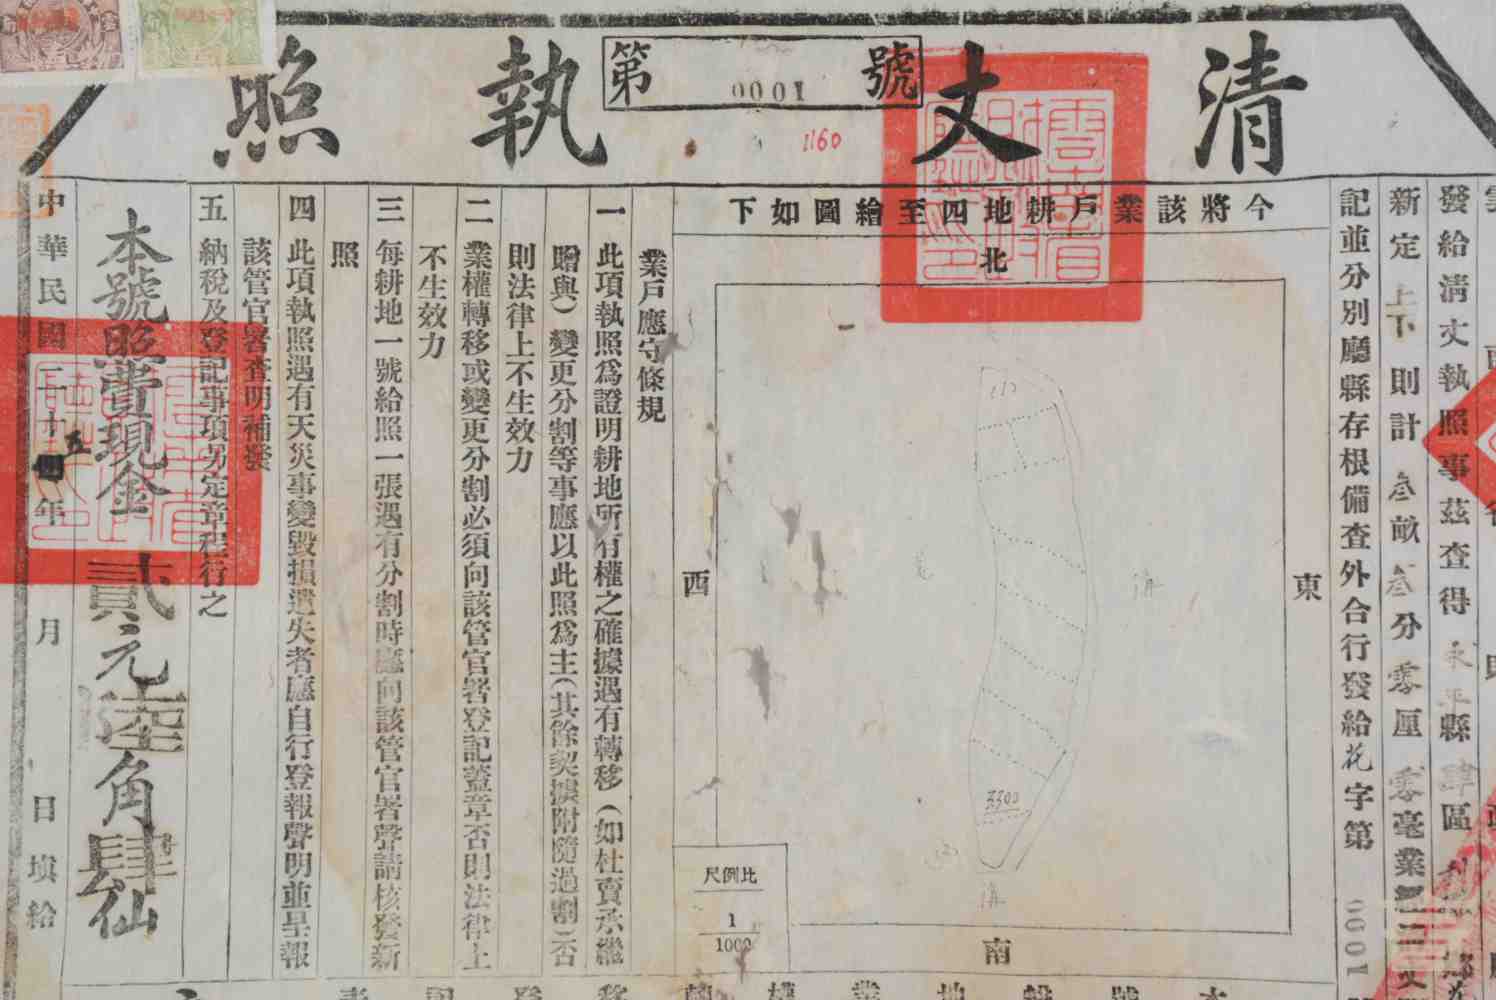 清丈執照
第 0001 號
1160
發給清丈執照事茲查得永平縣肆區
新定上下則計叁畝叁分零厘零毫業
記並分別廳縣存根備查外合行發給花字第 0001
今將該業戶耕地四至繪圖如下
北
東
西
南
3300
比例尺
1
1000
業戶應守條規
一 此項執照爲證明耕地所有權之確據遇有轉移(如杜賣承繼
贈與)變更分割等事應以此照爲主(其餘契據附隨過割)否
則法律上不生效力
二 業權轉移或變更分割必須向該管官署登記蓋章否則法律上
不生效力
三 每耕地一號給照一張遇有分割時應向該管官署聲請核發新
照
四 此項執照遇有天災事變毀損遺失者應自行登報聲明並呈報
該管官署查明補發
五 納稅及登記事項另定章程行之
本號照壹現金貳元陸角肆仙
中華民國二十五年 月 日填給